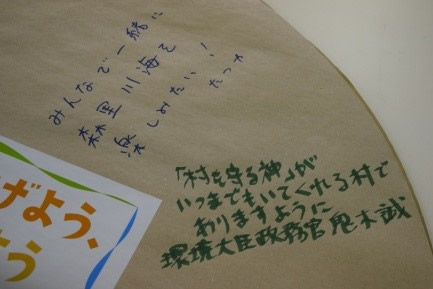 みんなで一緒に
森里川海を
楽しみたい!
「村を守る神」が
いつまでもいてくれる村で
ありますように
環境大臣政務官 鬼木誠
げよう、
う